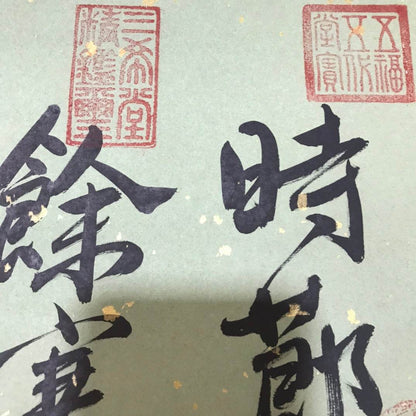 五福
五代
堂寶
時節
三希堂
精鑑璽
餘寒